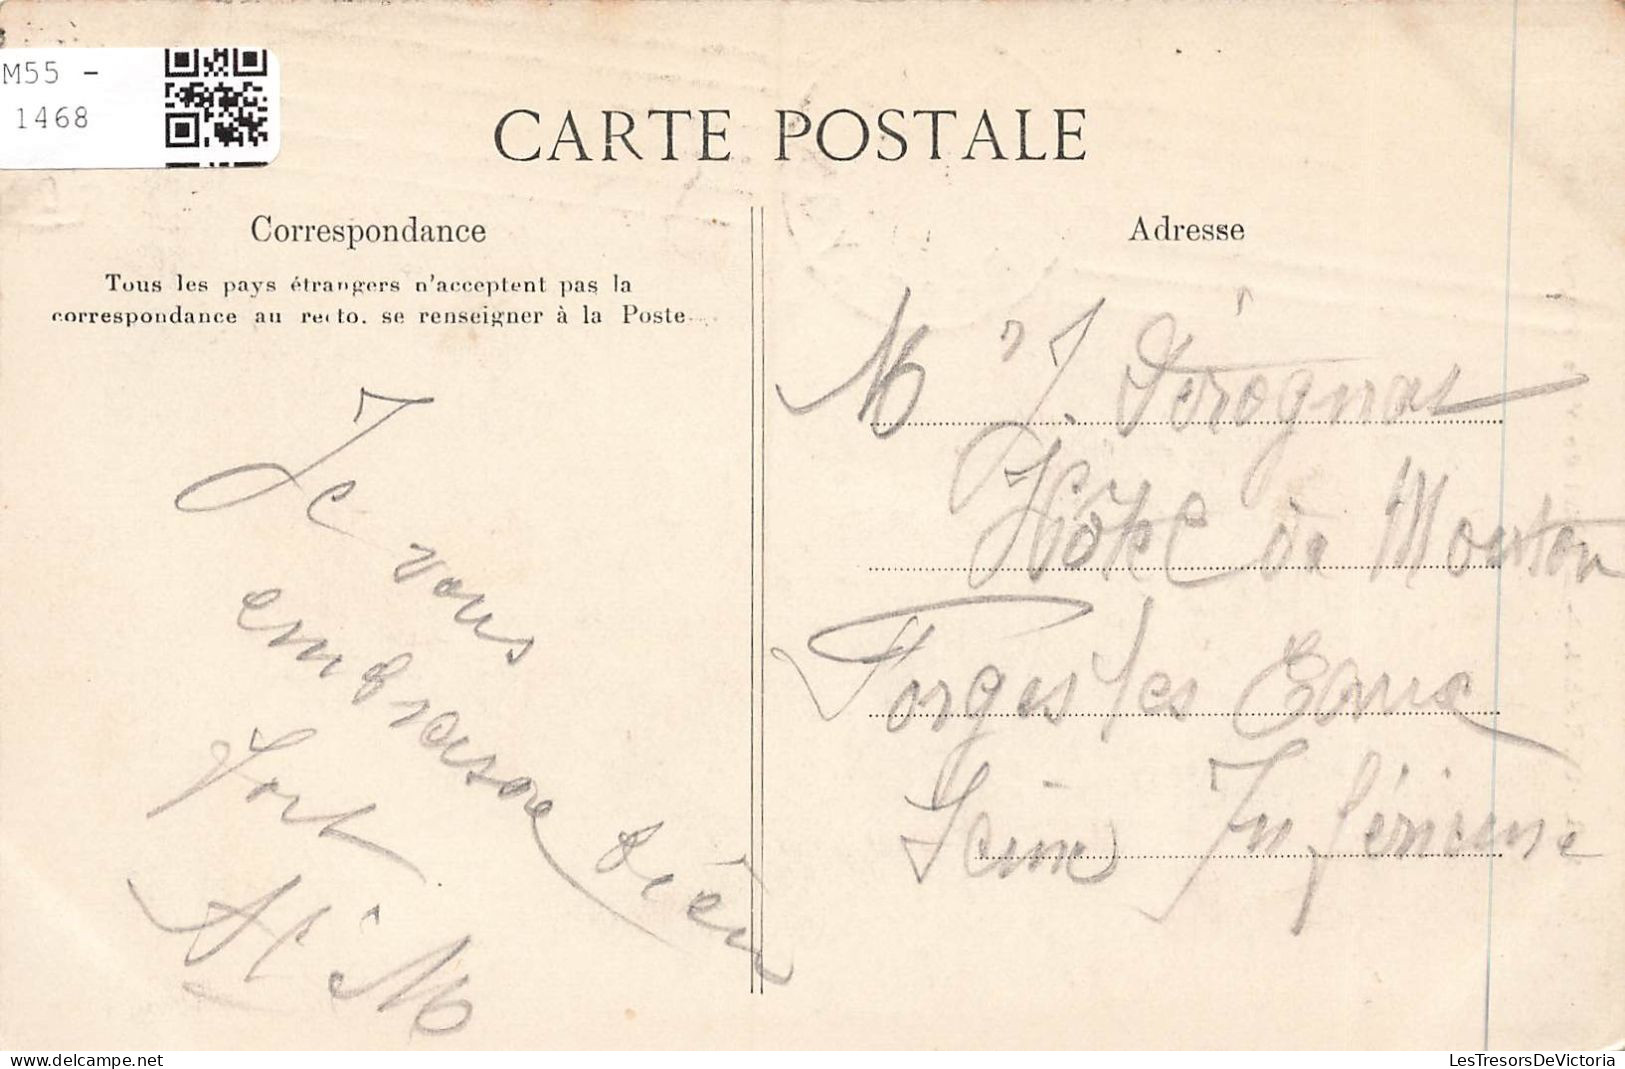 M55 -
1468
CARTE POSTALE
Correspondance
Tous les pays étrangers n'acceptent pas la
correspondance au recto. se renseigner à la Poste
Je vous
embrasse bien
fort
Adresse
Mr J. Pérognat
Hôtel du Mouton
Forges les Eaux
Seine Inférieure
LesTresorsDeVictoria